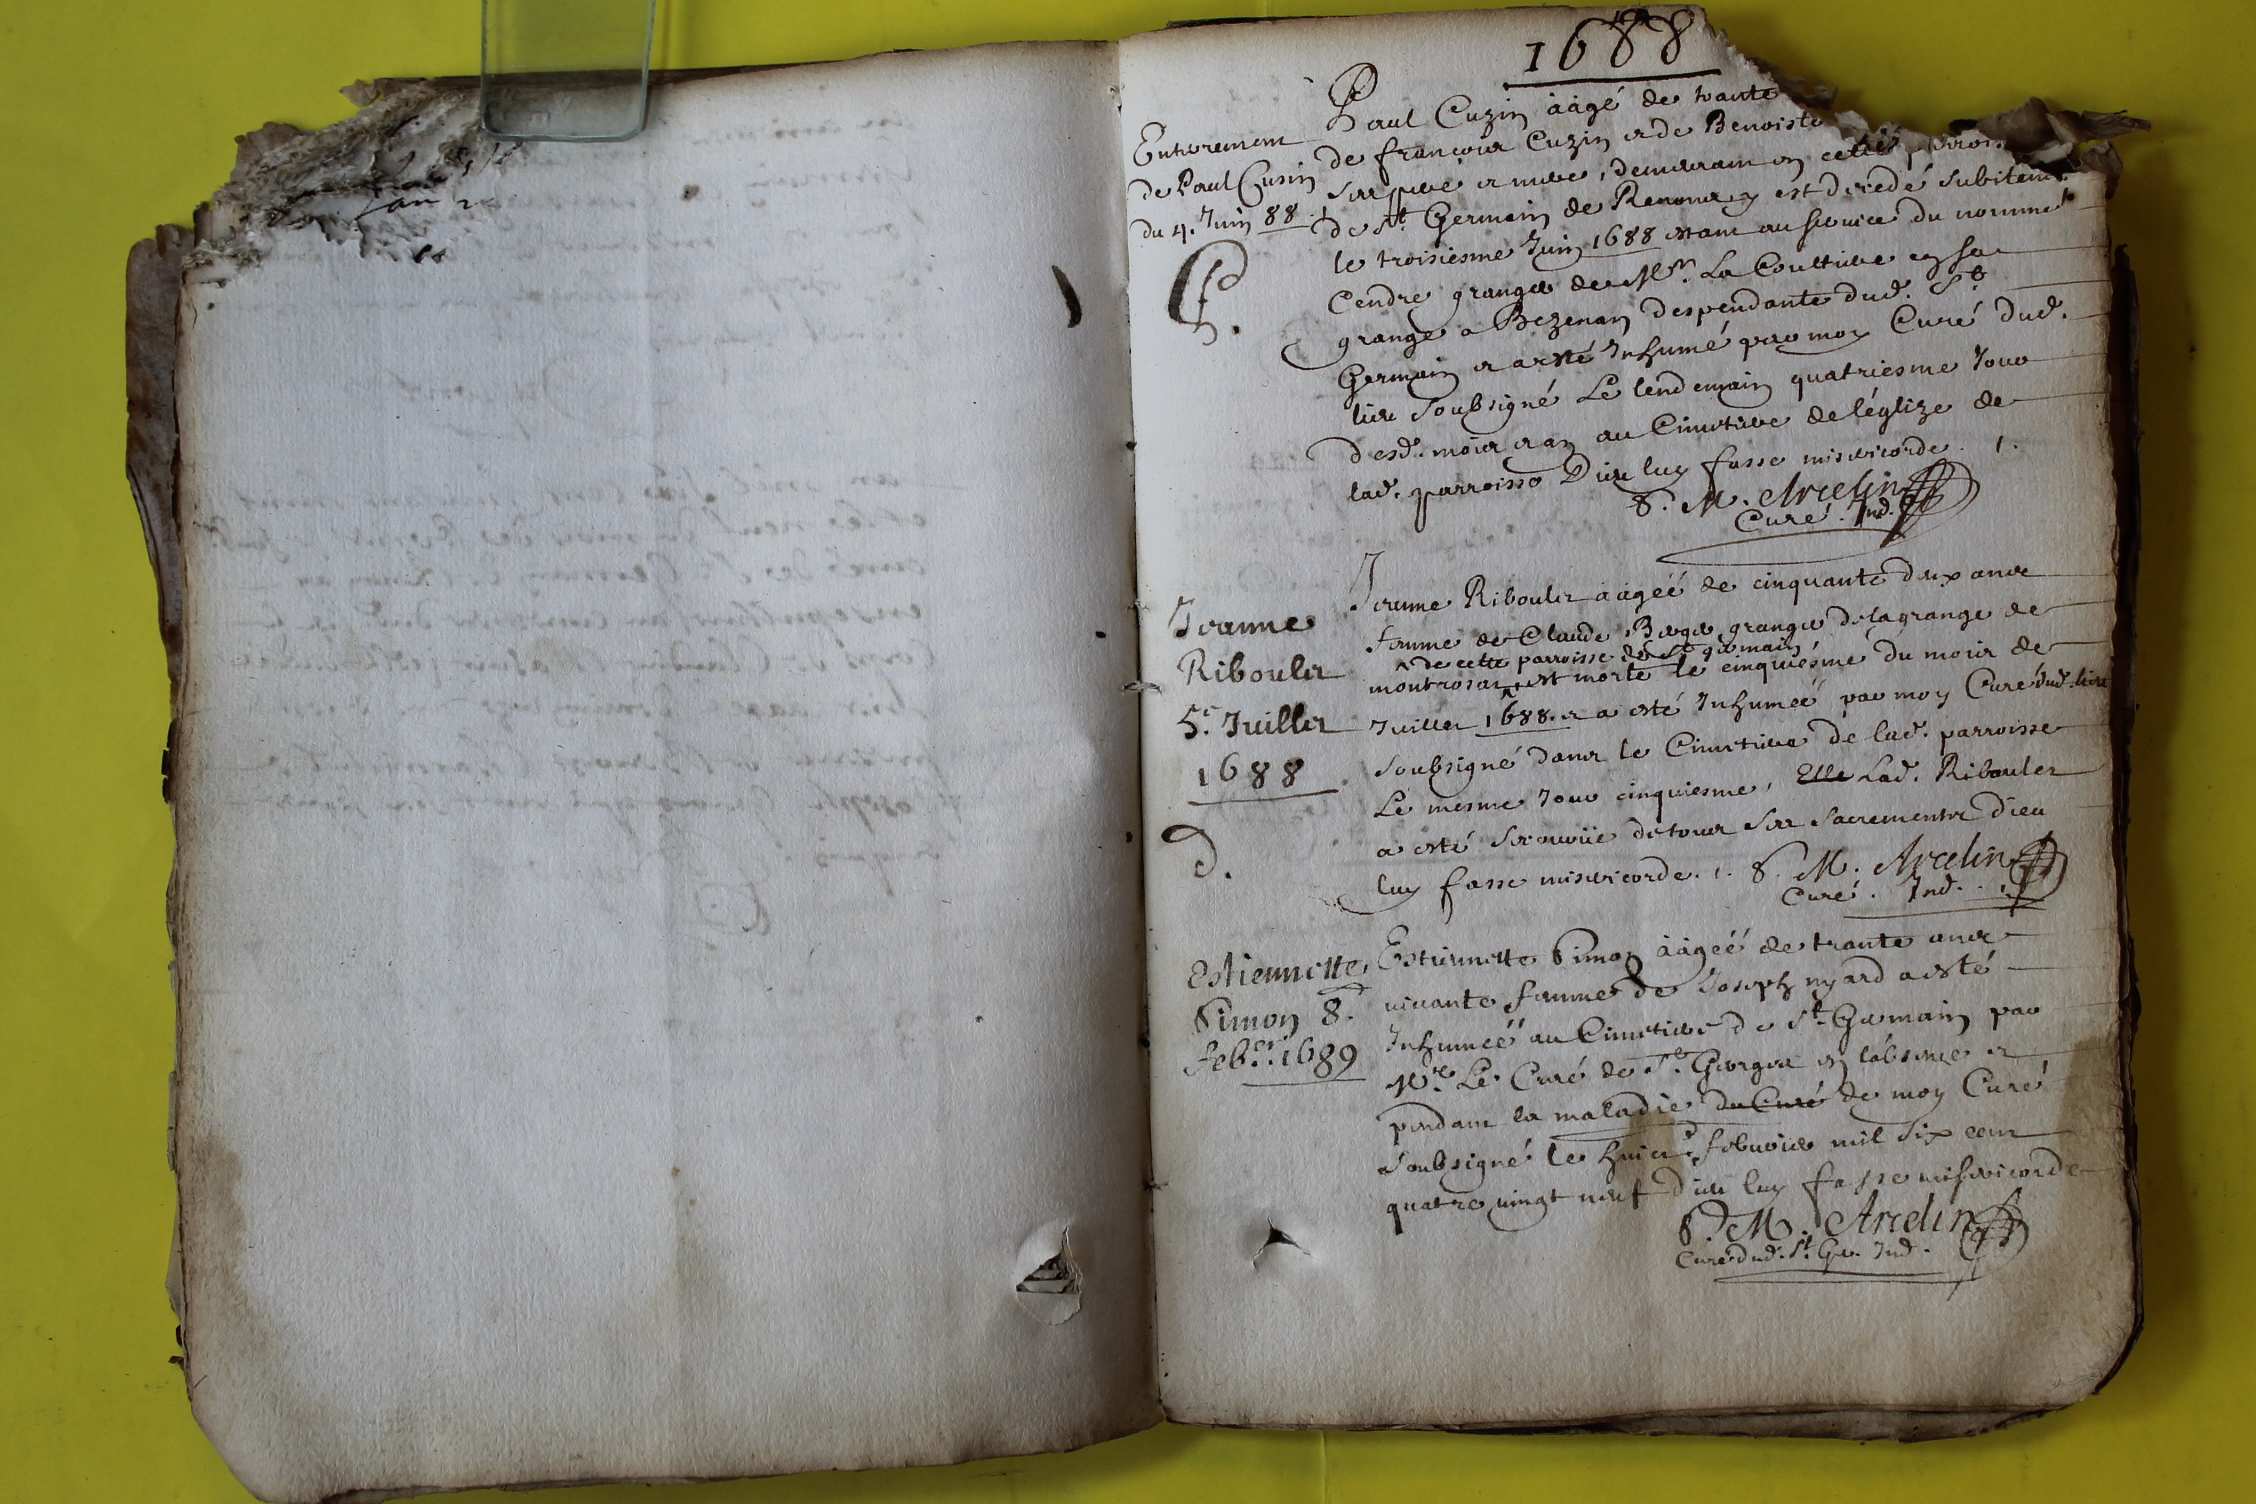 1688
Enterrement
de Paul Cusin
du 4. Juin 88
Paul Cuzin ààgé de trante
de françois Cuzin et de Benoiste
ses pere et mere, demeurant en cette parrois
de St. Germain de Renom y est decedé subitem
le troisiesme Juin 1688 estant au service du nommé
Cendre granger de Mr. La Couttiere en sa
grange a Bezenan despendante dud. St.
Germain et a esté Inhumé par moy Curé dud.
lieu soubsigné Le lendemain quatriesme Jour
desd. mois et an au Cimetiere de léglize de
lad. parroisse Dieu luy fasse misericorde.
S. M. Arcelin
Curé. Ind.
Jeanne
Riboulet
5e. Juillet
1688
d.
Jeanne Riboulet ààgéé de cinquante deux ans
femme de Claude Berger granger de la grange de
^ de cette parroisse de St germain
montrosat ^ est morte le cinquiésme du mois de
Juillet 1688. et a esté Inhuméé par moy Curé dud. lieu
soubsigné dans le Cimetiere de lad. parroisse
Le mesme Jour cinquiesme, Elle Lad. Riboulet
a esté secouruë de tous ses sacrements Dieu
luy fasse misericorde. S. M. Arcelin
Curé. Ind.
Estiennette
Simon 8.
feber. 1689
Estiennette Simon ààgéé de trante ans
vivante femme de Joseph nyard a esté
Inhuméé au Cimetiere de St. Germain par
Mre. Le Curé de St. Georges en lábsence et
pendant la maladie du Curé de moy Curé
soubsigné le huict.e febvrier mil six cent
quatre vingt neuf dieu luy fasse misericorde
S. M. Arcelin
Curé dud. St. Ger. Ind.